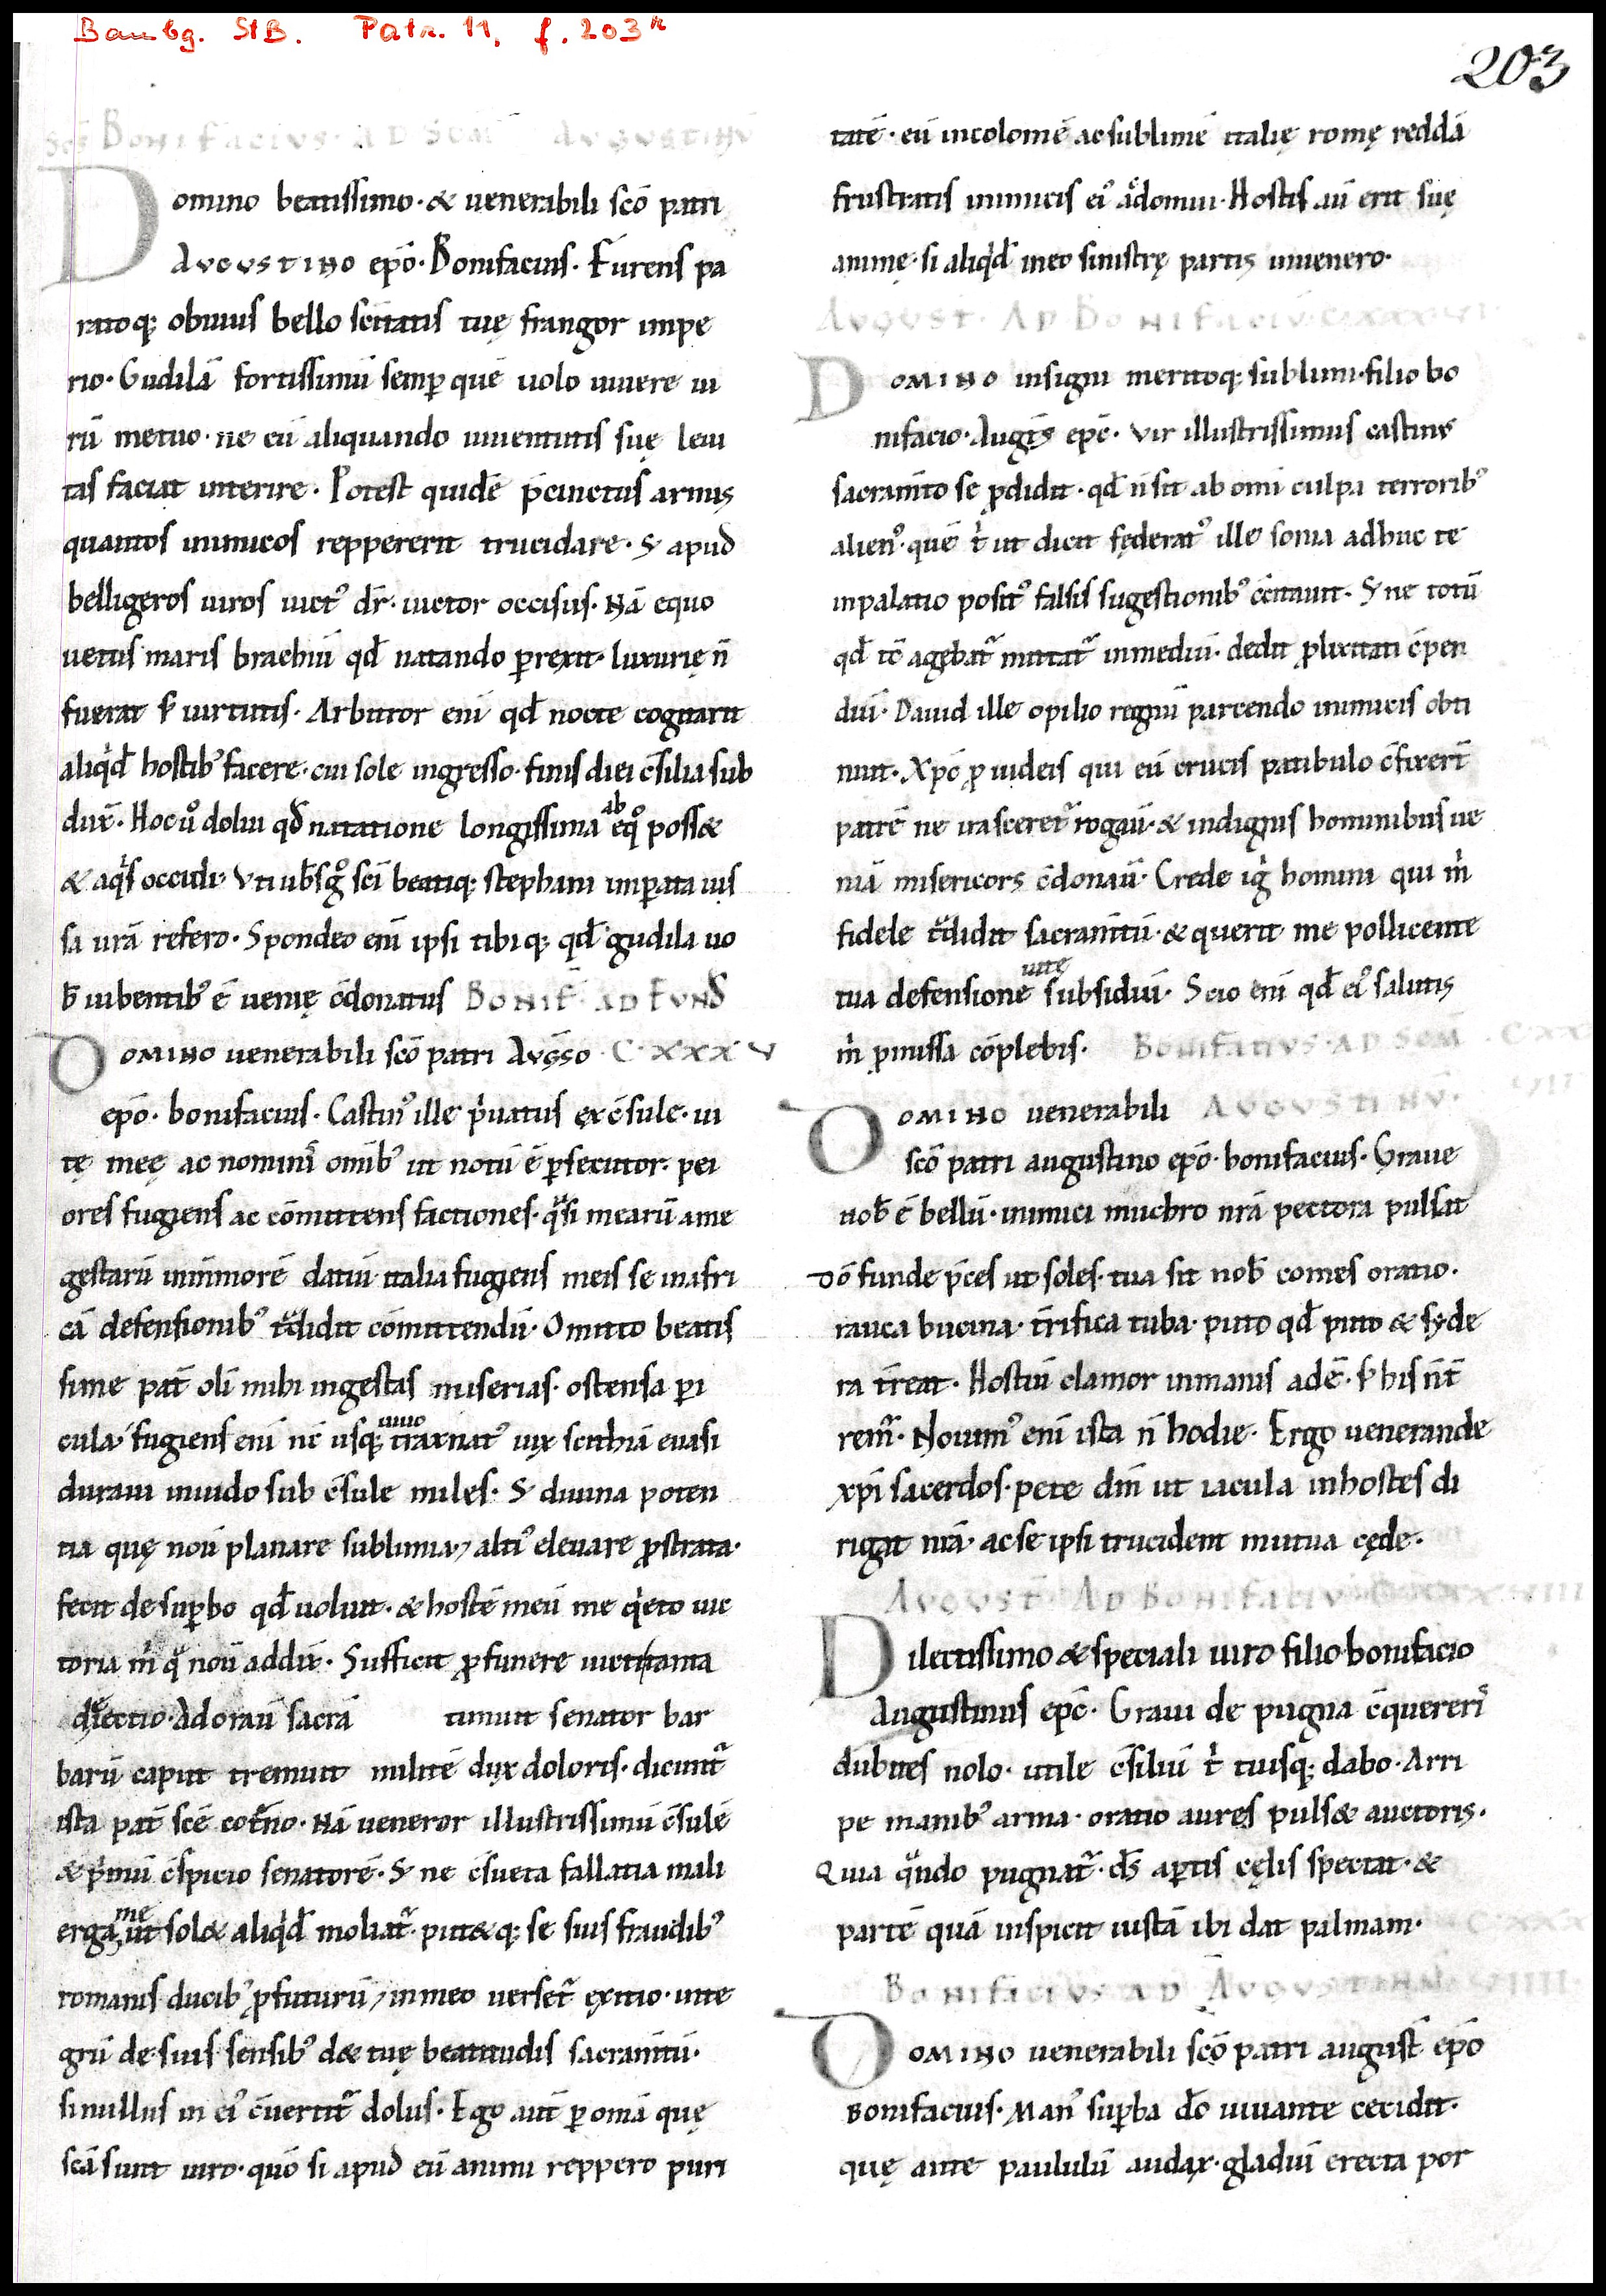 Bambg. StB. Patr. 11, f. 203r
203
scs Bonifacius · AD Scm Augustinu
Domino beatissimo · & uenerabili scō patri
Augustino epō · Bonifacius · Furens pa
ratoq; obuius bello scitatis tuę frangor impe
rio · Gudilā fortissimū semp quē uolo uiuere ui
rū metuo · ne eū aliquando iuuentutis suę leui
tas faciat interire · Potest quidē p̄cinctus armis
quantos inimicos reppererit trucidare · & apud
belligeros uiros uict᾽ dr̄ · uictor occisus · Nā equo
uetus maris brachiū qd̄ natando prexit · luxurię n̄
fuerat s; uirtutis · Arbitror enī qd̄ nocte cogitarit
aliqd̄ hostib᾽ facere · cui sole ingresso · finis diei c̄silia sub
dux̄ · Hoc ů dolui qd̄ natatione longissima ab eq̊ poss&
& aq̇s occidi · Vti ub̄s g̊ sci beatiq; stephani imperata ius
sa urā refero · Spondeo enī ipsi tibiq; qd̄ gudila uo
b̄ iubentib᾽ ē uenię c̄donatus BONIF · AD EUND
Domino uenerabili scō patri Augs̄o · C·XXXV
epō · bonifacius · Castin᾽ ille p̍uatus ex c̄sule · ui
tę meę ac nominī omīb᾽ ut notū ē psecutor · pei
ores fugiens ac cōmittens factiones · qᷓsi mearū a me
gestarū inmmorē datiū italia fugiens meis se in afri
cā defensionib᾽ tͣdidit cōmittendū · Omitto beatis
sime pat̄ oli mihi ingestas miserias · ostensa pi
cula · fugiens enī nc̄ usq; uiuo trax nat᾽ uix scithiā euasi
duraui inuido sub c̄sule miles · & diuina poten
tia quę nouit planare sublimia, altī elevare pstrata ·
fecit de supbo qd̄ uoluit · & hostē meū me q̍eto uic
toria m̍ qᷓ nouit addix̄ · Sufficit p funere uicti tanta
deiectio · Adorauit sacrā timuit senator bar
barū caput tremuit militē dux doloris · dicuntᷓ
ista pat̄ scē cot̄no · Nā ueneror illustrissimū c̄sulē
& p̍mū c̄spicio senatorē · & ne c̄sueta fallatia mali
erga me ut sol& aliqd̄ moliatᷓ · put&q; se suis fraudib᾽
romanis ducib᾽ pfuturū, in meo uersetᷓ exitio · inte
grū de suis sensib᾽ d& tuę beatitudis sacram̄tū ·
si nullus in ei᾽ c̄uertitᷓ dolus · Ego aūt p omā quę
scā sunt iuro · quō si apud eū animi reppero puri
tatē · eū incolomē ac sublimē italię romę reddā
frustratis inimicis ei᾽ aͣdomui · Hostis aū erit suę
animę · si aliqd̄ in eo sinistrę partis inuenero ·
August · AD Bonifaciū · CXXXVI
Domino insigni meritoq; sublimi · filio bo
nifacio · Augȳs epc̄ · Vir illustrissimus castinus
sacram̄to se pdidit · qd̄ n̄ sit ab omi culpa terrorib᾽
alien᾽ · quē t̍ ut dicit fęderat᾽ ille soma adhuc te
in palatio posit᾽ falsis sugestionib᾽ c̄citauit · & ne totū
qd̄ tc̄ agebatᷓ mittatᷓ in mediū · dedit plixitati c̄pen
diū · Dauid ille opilio regnū parcendo inimicis obti
nuit · Xpc̄ p iudeis qui eū crucis patibulo c̄fixer̄t
patrē ne irasceretᷓ rogaū · & indignis hominibus ue
niā misericors c̄donaū · Crede ig̍ homini qui m̍
fidele tͣdidit sacram̄tū · & querit me pollicente
tua defensione uitę subsidiū · Scio enī qd̄ ei᾽ salutis
m̍ pmissa cōplebis · Bonifatius · AD SCM · CXX
Domino uenerabili Augustinū · VII
scō patri augustino epō · bonifacius · Graue
nob̄ ē bellū · inimici mucbro nrā pectora pulsat
dō funde p̄ces ut soles · tua sit nob̄ comes oratio ·
rauca bucina · t̄rifica tuba · puto qd̄ puto & syde
ra t̄reat · Hostiū clamor inmanis adē · s; his n̄ t̄
remᷓ · Nouim᾽ enī ista n̄ hodie · Ergo uenerande
xpi sacerdos · pete dm̄ ut iacula in hostes di
rigat nrā · ac se ipsi trucident mutua cęde ·
August · AD Bonifatiū CXXXVIII
Dilectissimo & speciali uiro filio bonifacio
Augustinus epc̄ · Graui de pugna c̄quereri᾽
dubites nolo · utile c̄siliū t̍ tuisq; dabo · Arri
pe manib᾽ arma · oratio aures puls& auctoris ·
Quia qᷓndo pugnatᷓ · ds̄ aptis cęlis spectat · &
partē quā inspicit iustā ibi dat palmam · CXXX
Bonifacius AD Augustinum VIIII
Domino uenerabili scō patri august̄ epō
Bonifacius · Man᾽ supba dō uiuante cecidit ·
quę ante paululū audax · gladiū erecta por